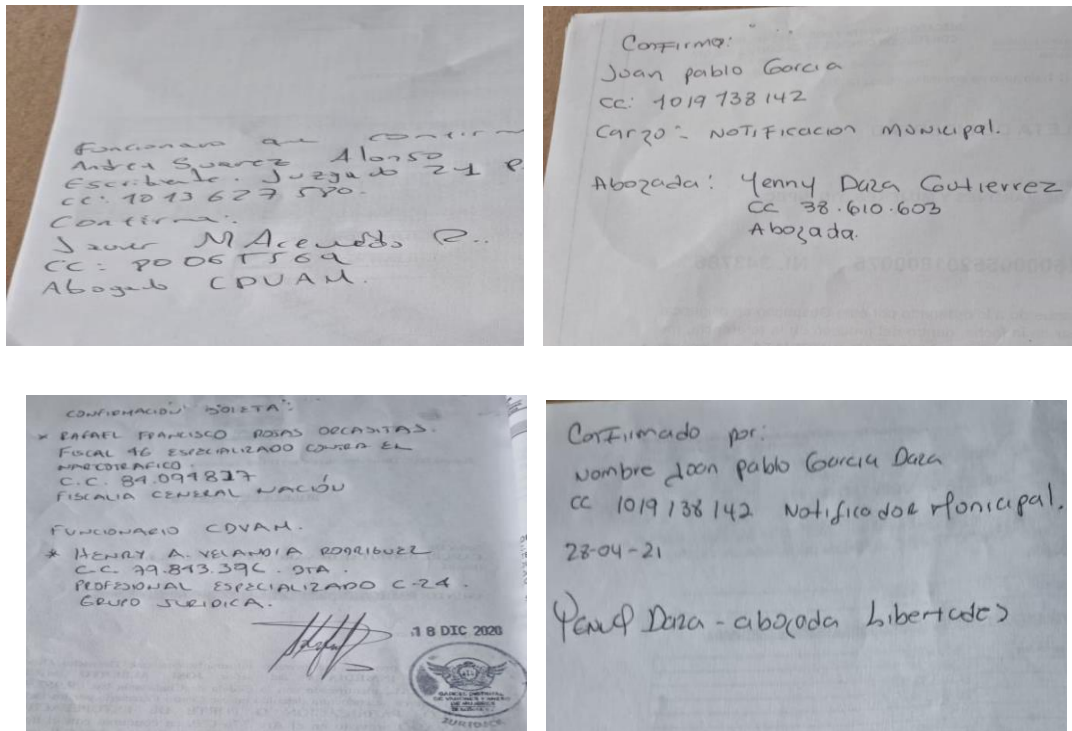 Funcionario que confirm
Andres Suarez Alonso
Escribiente. Juzgado 21 P.
CC: 1013627580.
Confirma:
Javier M Acevedo R.
CC: 80065569
Abogado CDVAM.
Confirma:
Juan pablo Garcia
CC: 1019138142
Cargo = NOTIFICACION MUNICIPAL.
Abogada: Yenny Daza Gutierrez
CC 38.610.603
Abogada.
CONFIRMACIÓN BOLETA:
* RAFAEL FRANCISCO ROSAS ORCASITAS.
FISCAL 46 ESPECIALIZADO CONTRA EL
NARCOTRAFICO.
C.C. 84.094837
FISCALIA GENERAL NACIÓN
FUNCIONARIO CDVAM.
* HENRY A. VELANDIA RODRIGUEZ
C.C. 79.843.396. BTA.
PROFESIONAL ESPECIALIZADO C-24.
GRUPO JURIDICA.
18 DIC 2020
CARCEL DISTRITAL
DE VARONES Y ANEXO
DE MUJERES
JURIDICA
Confirmado por:
Nombre Joan pablo Garcia Daza
CC 1019138142 Notificador Monicipal.
28-04-21
Daza - abogada Libertades